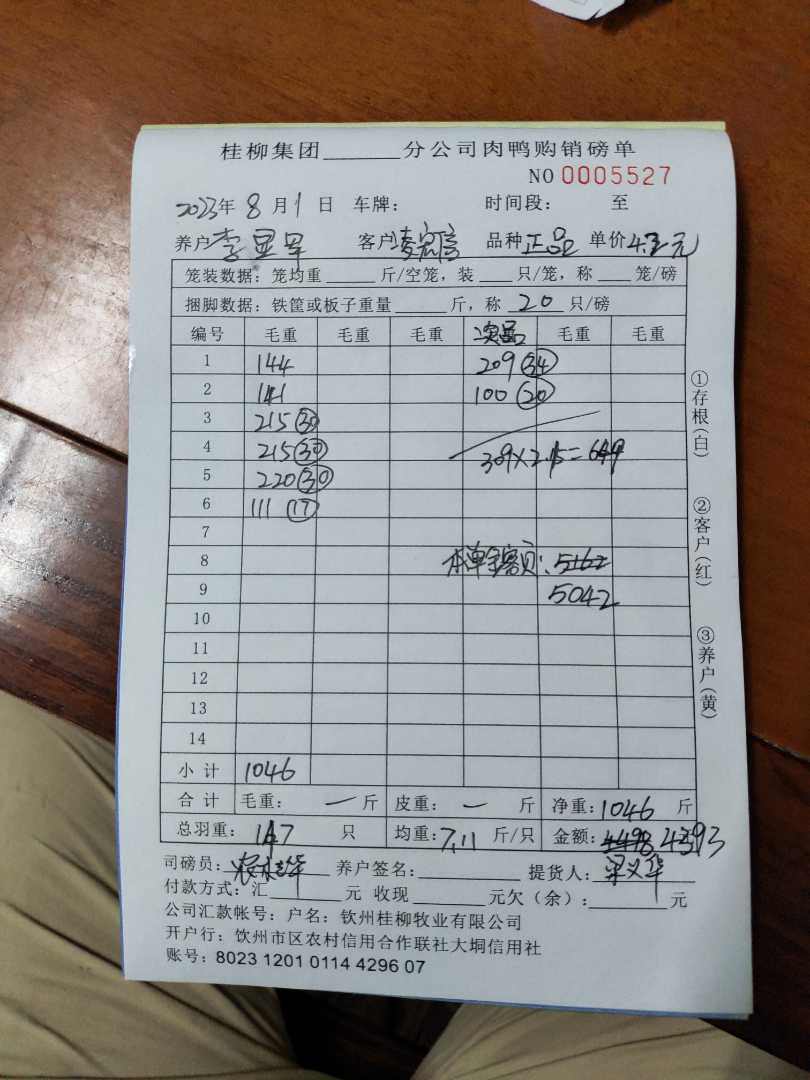 桂柳集团______分公司肉鸭购销磅单
NO 0005527
2023年 8 月 1 日 车牌: 时间段: 至
养户 李显军 客户 凌宏信 品种 正品 单价 4.2元
笼装数据: 笼均重 ____ 斤/空笼, 装 ___ 只/笼, 称 ___ 笼/磅
捆脚数据: 铁筐或板子重量 ____ 斤, 称 20 只/磅
编号 毛重 毛重 毛重 次品 毛重 毛重
1 144 209 34
2 141 100 20
3 215 30
4 215 30 309×2.1=649
5 220 30
6 111 17
7
8 本单金额: 5162
9 5042
10
11
12
13
14
小计 1046
合计 毛重: — 斤 皮重: — 斤 净重: 1046 斤
总羽重: 147 只 均重: 7.11 斤/只 金额: 4498 4393
司磅员: 养户签名: 提货人: 梁义华
付款方式: 汇 元 收现 元欠(余): 元
公司汇款帐号: 户名: 钦州桂柳牧业有限公司
开户行: 钦州市区农村信用合作联社大垌信用社
账号: 8023 1201 0114 4296 07
①存根(白)
②客户(红)
③养户(黄)